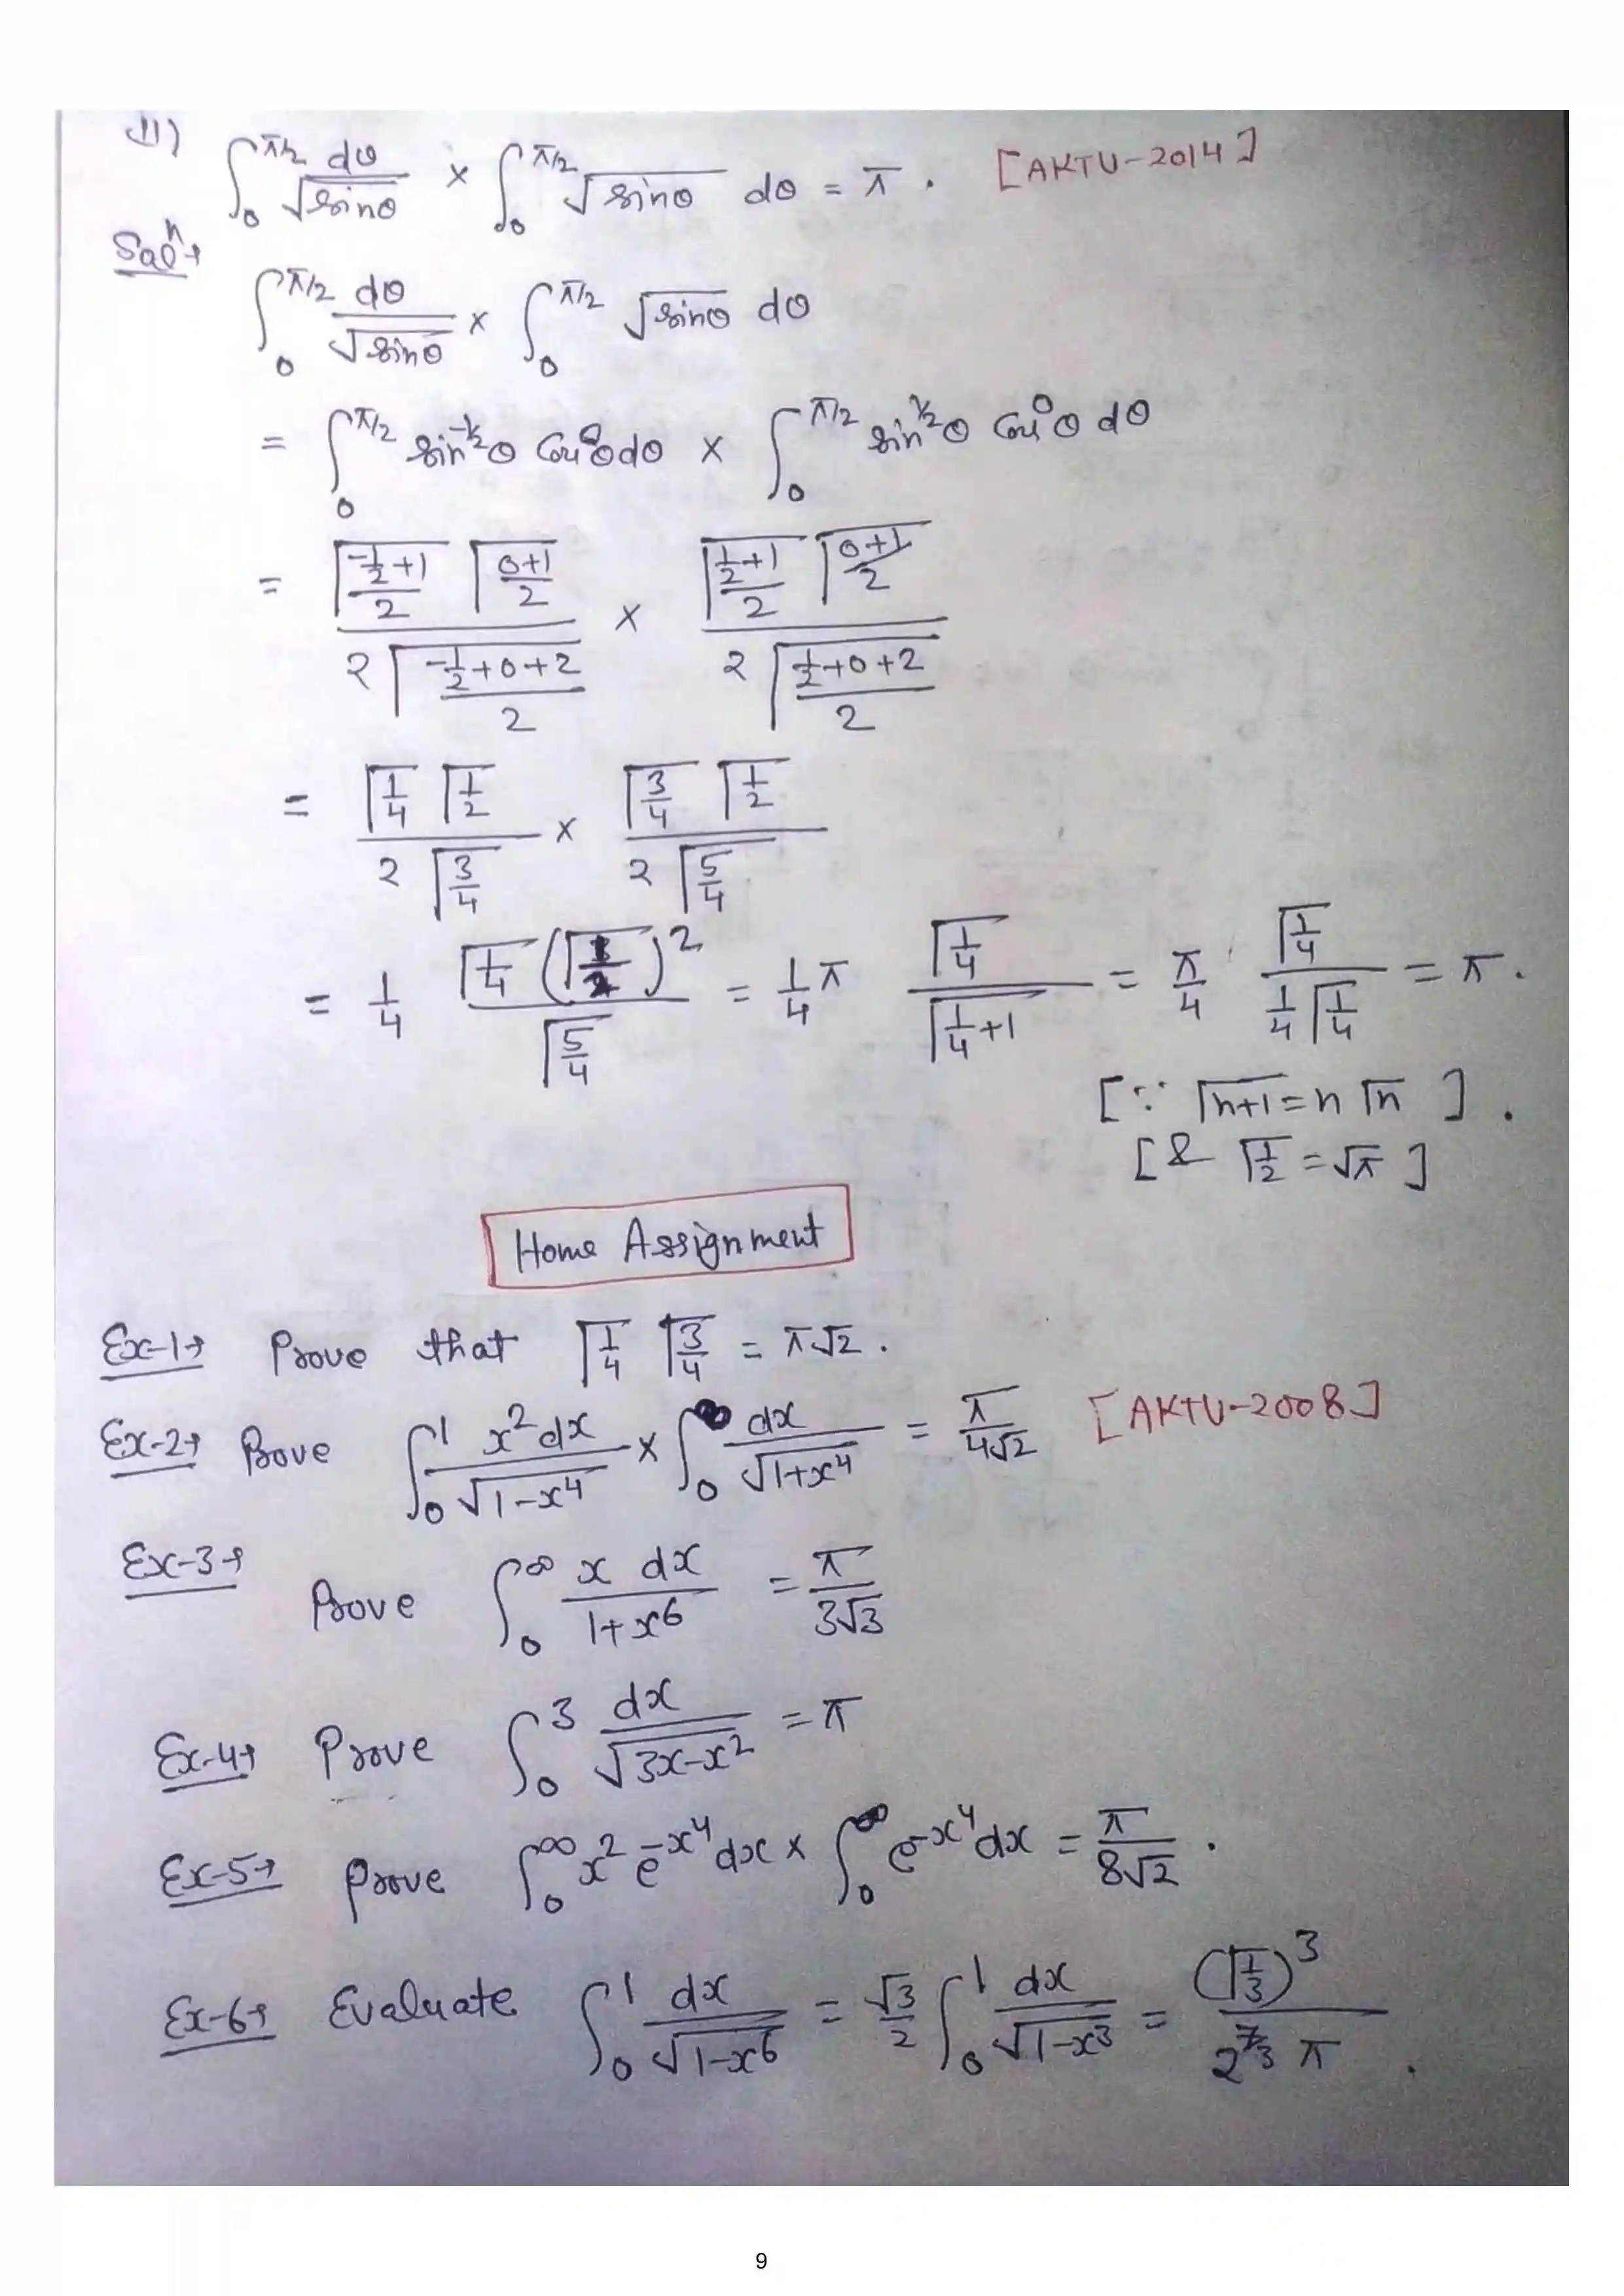 ii) ∫₀^{π/2} dθ/√sinθ × ∫₀^{π/2} √sinθ dθ = π . [AKTU-2014]
Solⁿ→
∫₀^{π/2} dθ/√sinθ × ∫₀^{π/2} √sinθ dθ
= ∫₀^{π/2} sin^{-1/2}θ cos⁰θ dθ × ∫₀^{π/2} sin^{1/2}θ cos⁰θ dθ
= (Γ((-1/2+1)/2) Γ((0+1)/2)) / (2 Γ((-1/2+0+2)/2)) × (Γ((1/2+1)/2) Γ((0+1)/2)) / (2 Γ((1/2+0+2)/2))
= (Γ(1/4) Γ(1/2)) / (2 Γ(3/4)) × (Γ(3/4) Γ(1/2)) / (2 Γ(5/4))
= 1/4 (Γ(1/4) (Γ(1/2))²) / Γ(5/4) = 1/4 π Γ(1/4) / Γ(1/4+1) = π/4 Γ(1/4) / (1/4 Γ(1/4)) = π .
[∵ Γ(n+1) = n Γ(n) ] .
[& Γ(1/2) = √π ]
Home Assignment
Ex-1→ Prove that Γ(1/4) Γ(3/4) = π√2 .
Ex-2→ Prove ∫₀¹ x² dx/√(1-x⁴) × ∫₀^∞ dx/√(1+x⁴) = π/(4√2) [AKTU-2008]
Ex-3→
Prove ∫₀^∞ x dx/(1+x⁶) = π/(3√3)
Ex-4→ Prove ∫₀³ dx/√(3x-x²) = π
Ex-5→ Prove ∫₀^∞ x² e^{-x⁴} dx × ∫₀^∞ e^{-x⁴} dx = π/(8√2) .
Ex-6→ Evaluate ∫₀¹ dx/√(1-x⁶) = √3/2 ∫₀¹ dx/√(1-x³) = (Γ(1/3))³ / (2^{7/3} π) .
9